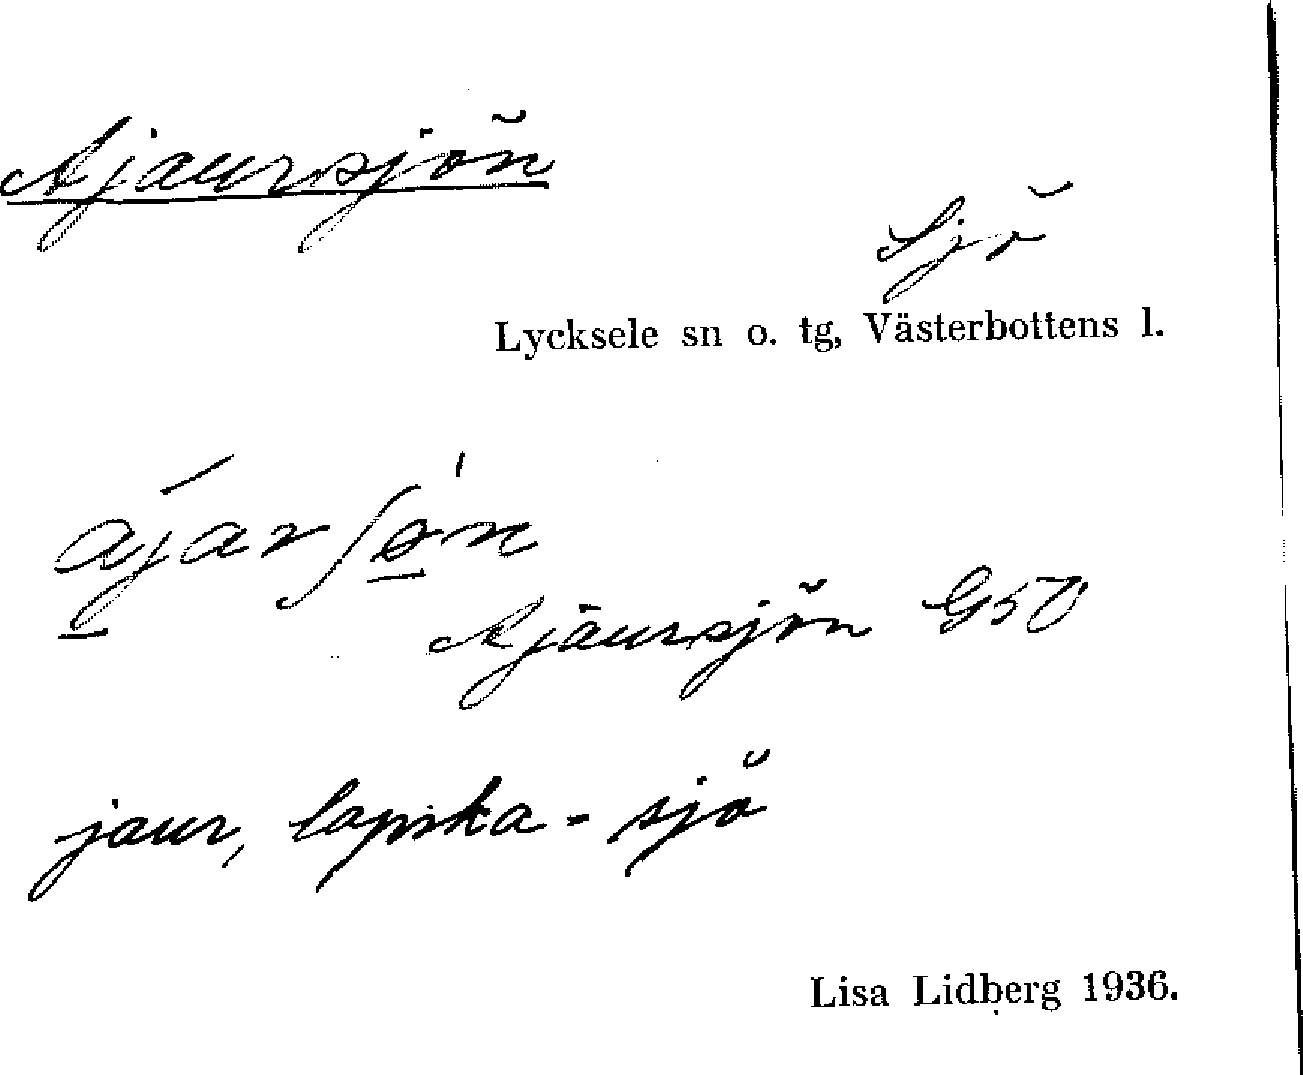 Ajaursjön
Sjö
Lycksele sn o. tg, Västerbottens l.
Ajaursjön G50
jaur, lapska - sjö
Lisa Lidberg 1936.